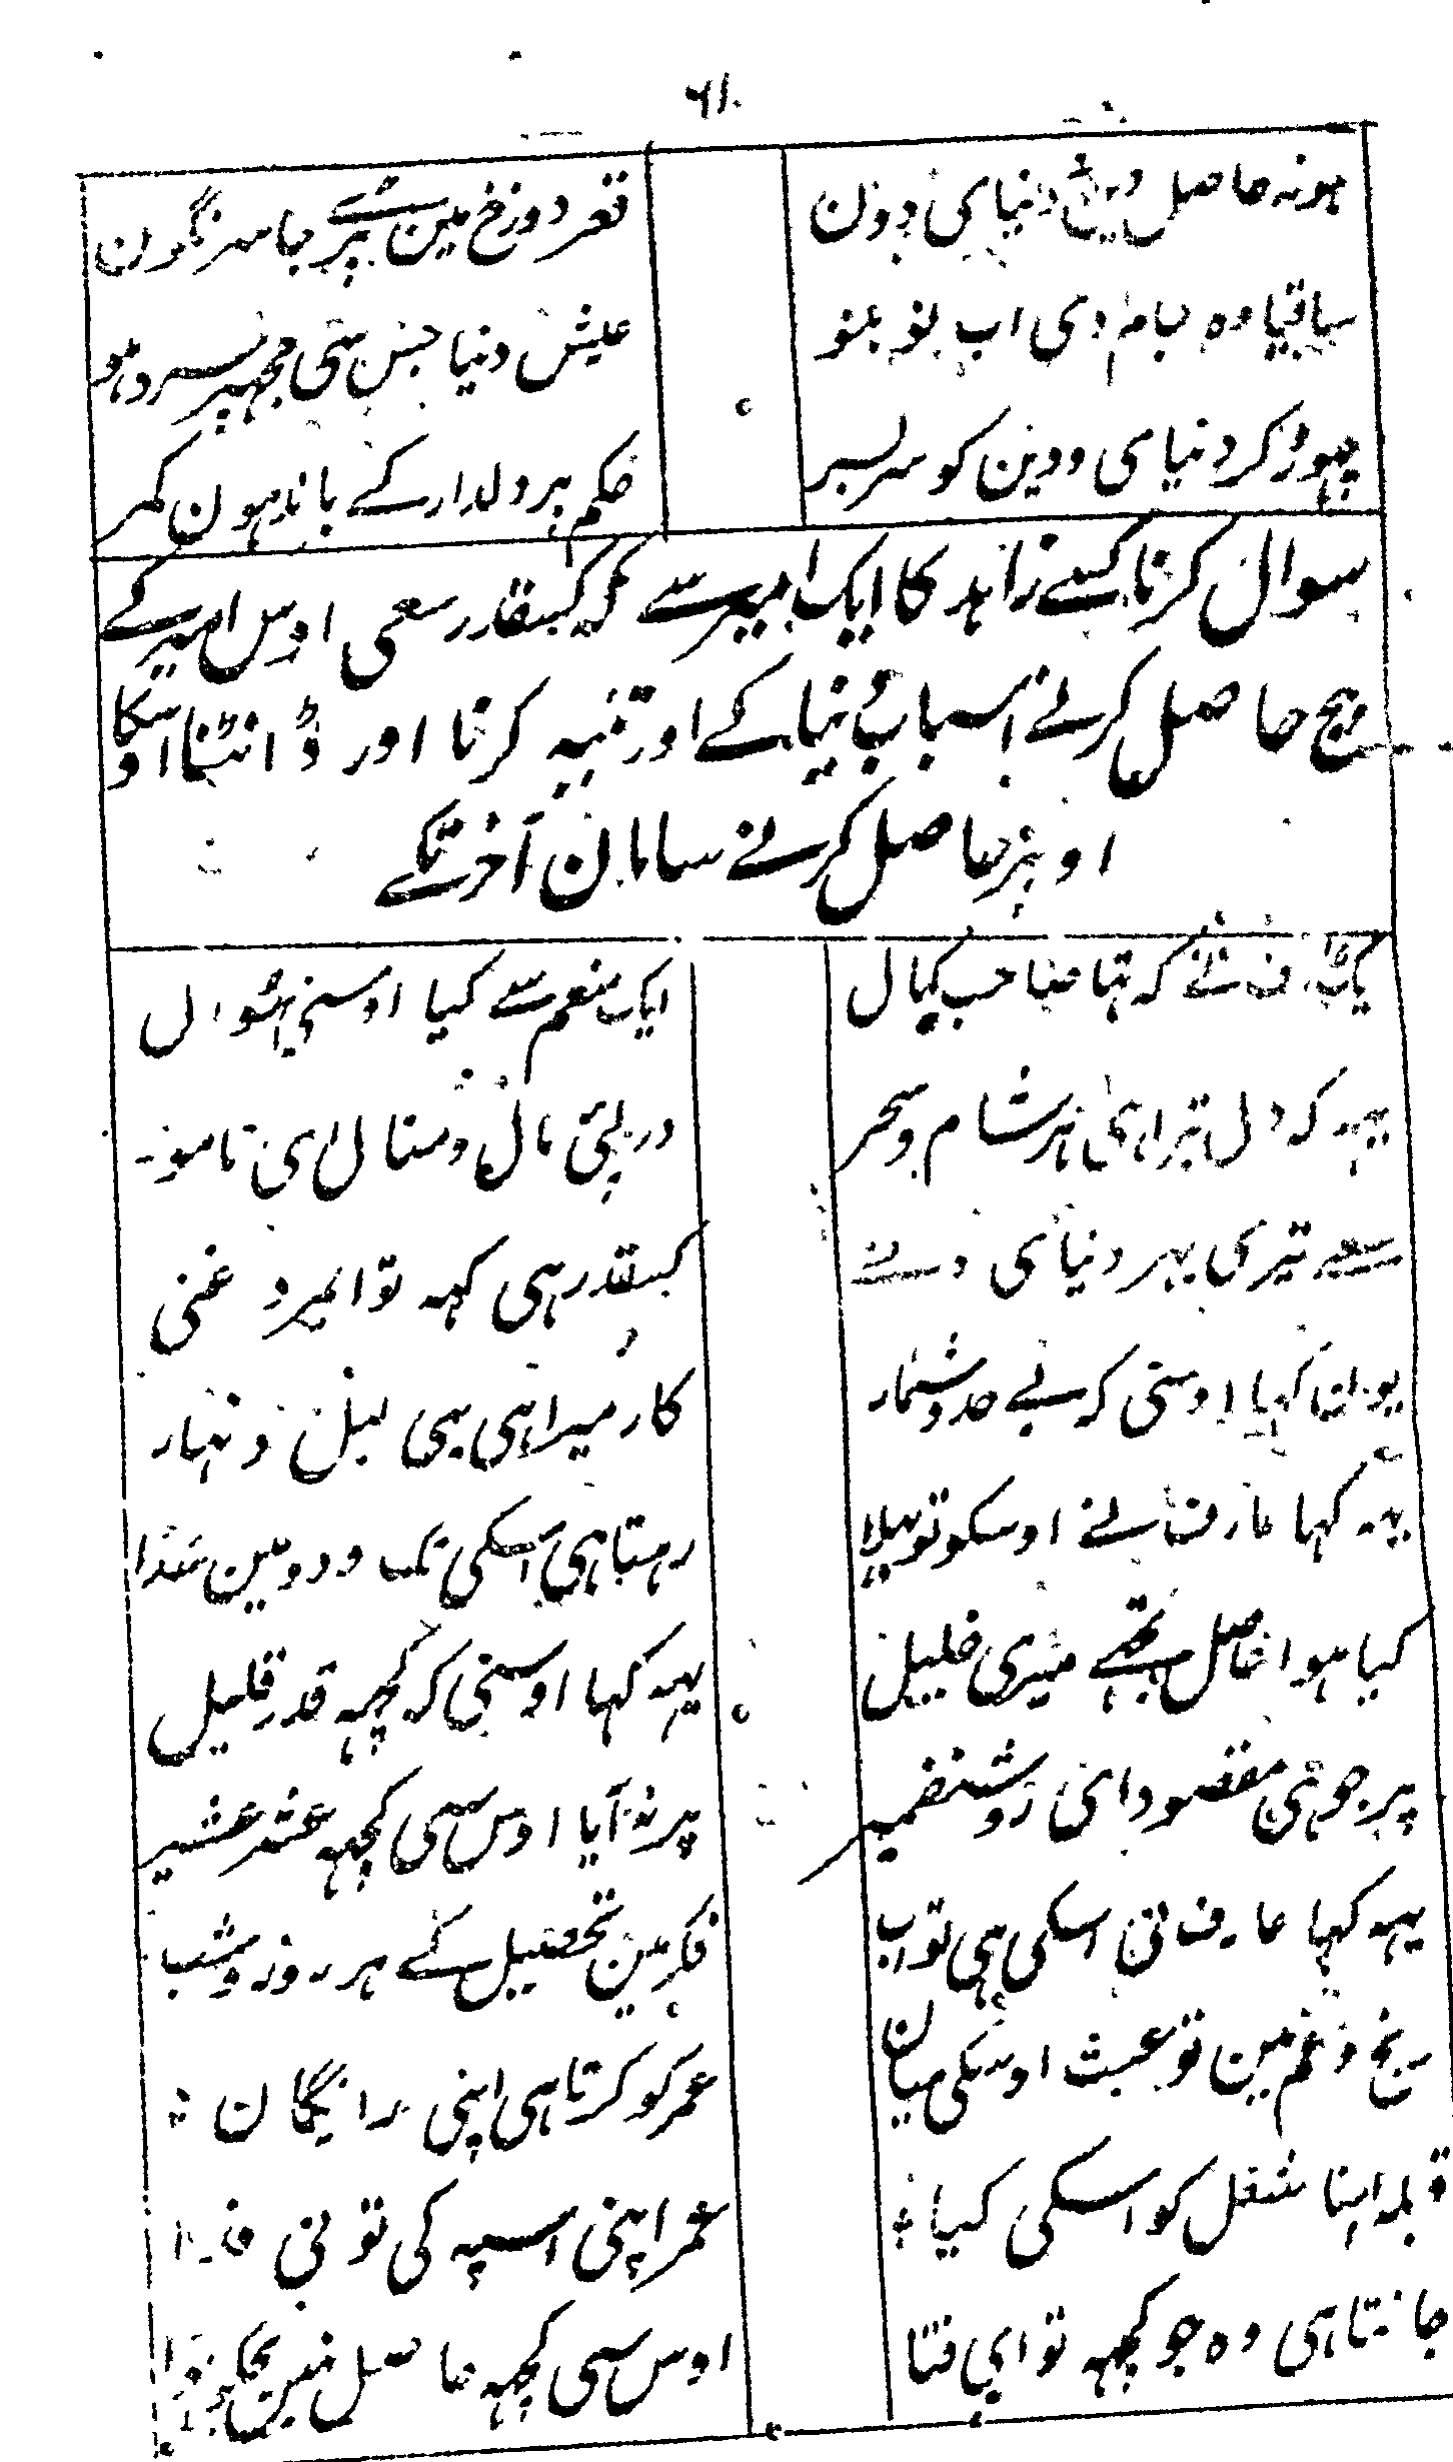 ٦١
ہونہ حاصل دنیای دون قعر دوزخ مین پڑے جا سرنگون
ساقیا وہ جام دی اب نو بنو عیش دنیا جس ستی مجہپر سرد ہو
چہوڑ کر دنیای و دین کو سربسر حکم پر دلدار کے باندہون کمر
سوال کرنا کسے زاہد کا ایک امیر سے کہ کسقدر سعی اوس امیر کے
بیچ حاصل کرنے اسباب دنیا کے اور تنبیہ کرنا اور ڈانٹنا اوسکا
اوپر حاصل کرنے سامان آخرتکے
کہ تہا صاحب کمال ایک منعم سے کیا اوسنی سوال
یہہ کہ دل تیرا ہی ہر شام و سحر درپئی مال و منال ای نامور
سعے تیری بہر دنیای دنے کسقدر ہی کہہ تو ایمرد غنی
یون کہا اوسنی کہ بے حد و شمار کار میرا ہی یہی لیل و نہار
یہہ کہا عارف نے اوسکو تو بہلا رہتا ہی اسکی تک و دو مین سدا
کیا ہوا حاصل تجہے میری خلیل یہہ کہا اوسنی کہ کچہہ قدر قلیل
پر جو ہی مقصود ای روشنضمیر پر نہ آیا اوس سی کچہہ عشر عشیر
یہہ کہا عارف نی اسکی ہی تو اب فکر مین تحصیل کے ہر روز و شب
رنج و غم مین تو عبث اوسکی میان عمر کو کرتا ہی اپنی رائیگان
قبلہ اپنا شغل کو اسکی کیا عمر اپنی اسپہ کی تو نی فدا
جانتا ہی وہ جو کچہہ تو ای فتا اوس سی کچہہ حاصل نہین تجکو ہوا